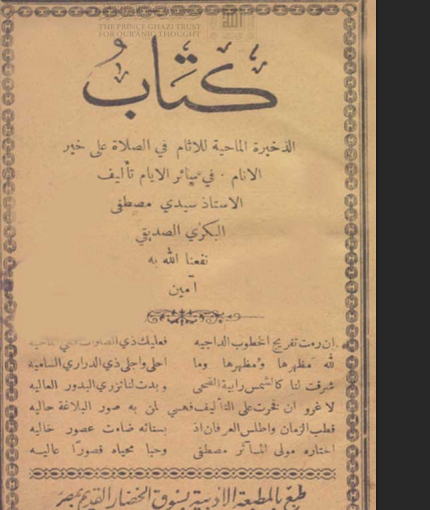 THE PRINCE GHAZI TRUST
FOR QUR'ANIC THOUGHT
كتاب
الذخيرة الماحية للاثام في الصلاة على خير
الانام . في سائر الايام تأليف
الاستاذ سيدي مصطفى
البكري الصديقي
نفعنا الله به
آمين
ان رمت تفريج الخطوب الداجيه فعليك ذي الصلوات الماحيه
لله مظهرها ومظهرها وما احلى واجلى ذي الدراري الساميه
شرقت لنا كالشمس رابية الضحى وبدت لنا تزري البدور العاليه
لا غرو ان فخرت على التأليف فهي لمن به صور البلاغة حاليه
قطب الزمان واطلس العرفان اذ بسنائه ضاءت عصور خاليه
اختاره مولى المآثر مصطفى وحبا محياه قصورًا عاليه
طبع بالمطبعة الادبية بسوق الخضار القديم بمصر